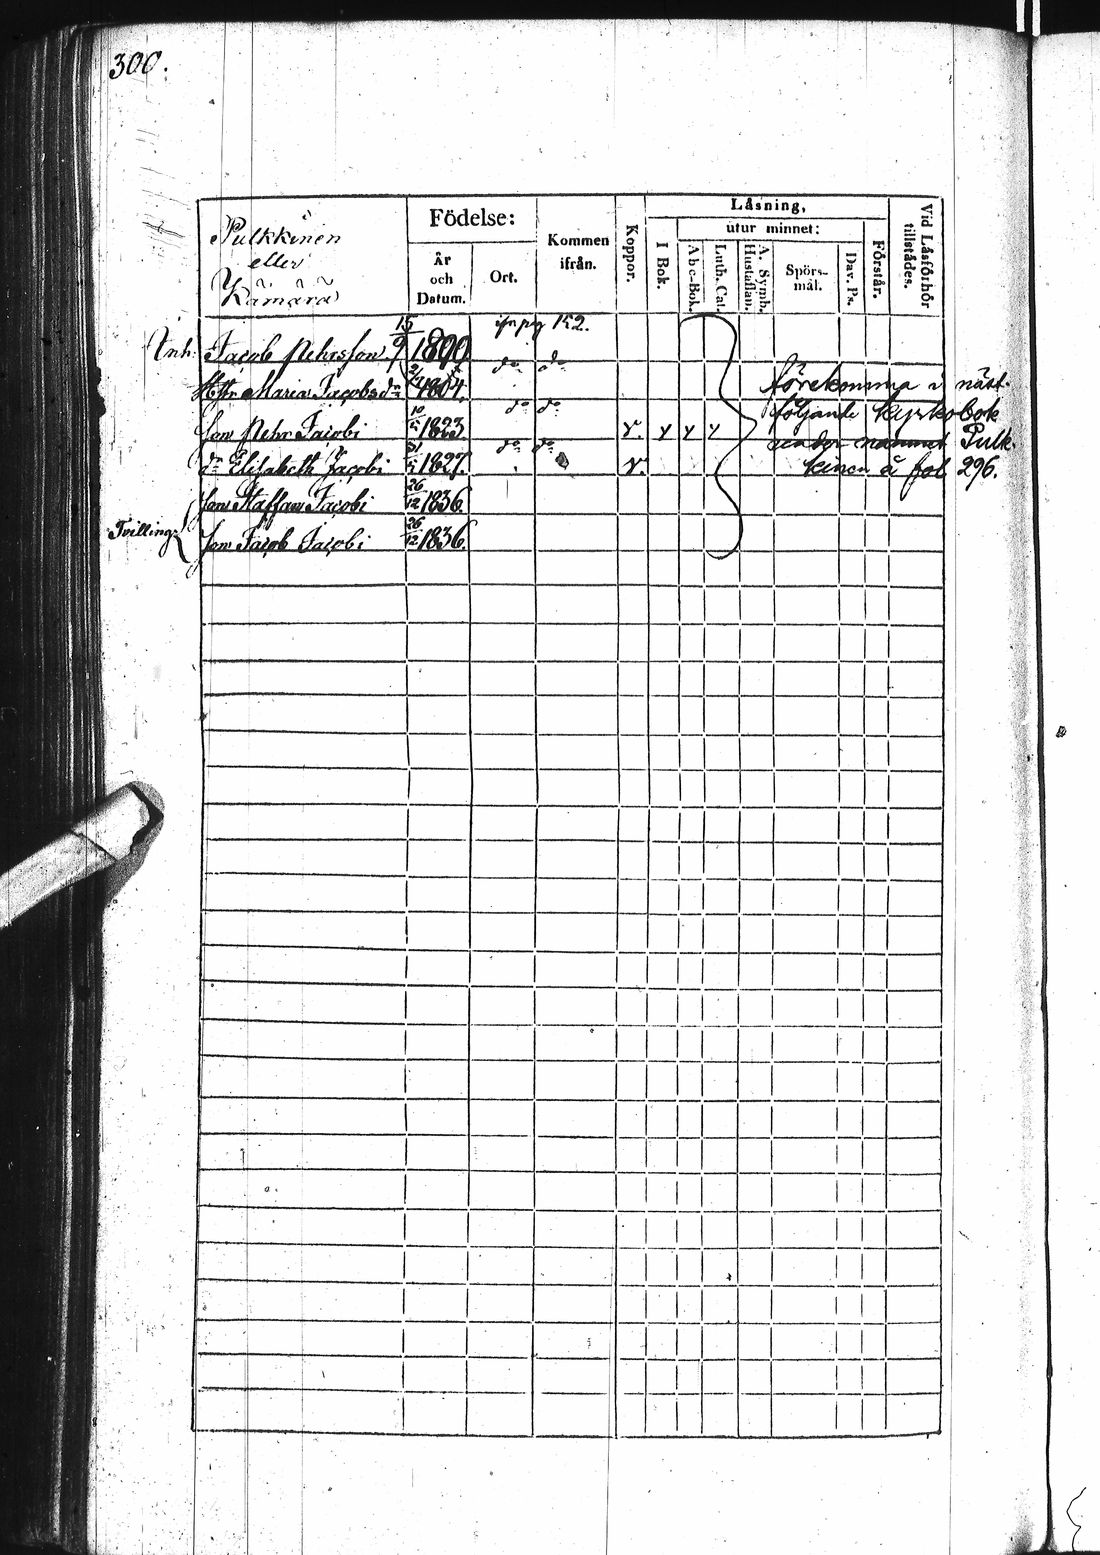 300.
Pulkkinen
eller
Kämärä
Födelse:
År
och
Datum.
Ort.
Kommen
ifrån.
Koppor.
Låsning,
I Bok.
utur minnet:
Abc-Bok.
Luth. Cat.
A. Symb.
Hustaflan.
Spörs-
mål.
Dav. Ps.
Förstår.
Vid Låsförhör
tillstådes.
Inh: Jacob Pehrsson 15/9 1800 pag 152.
Hstr Maria Jacobsdr 1804. do do
Son Pehr Jacobi 10 1823 do do v. y y y
dr Elisabeth Jacobi 31 1827. do do v.
Tvilling
Son Staffan Jacobi 26/12 1836.
Son Jacob Jacobi 26/12 1836.
förekomma i näst
följande kyrkobok
under namnet Pulk
kinen å fol 296.